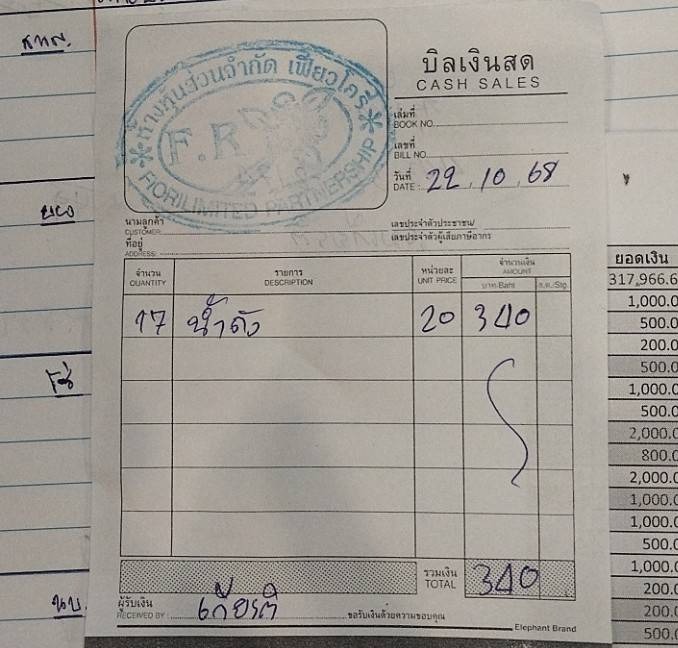 ห้างหุ้นส่วนจำกัด เฟียวโครี่
F.R
FIORI LIMITED PARTNERSHIP
บิลเงินสด
CASH SALES
เล่มที่
BOOK NO.
เลขที่
BILL NO.
วันที่
DATE : 22.10.68
นามลูกค้า
CUSTOMER
เลขประจำตัวประชาชน/
เลขประจำตัวผู้เสียภาษีอากร
ที่อยู่
ADDRESS:
จำนวน รายการ หน่วยละ จำนวนเงิน
QUANTITY DESCRIPTION UNIT PRICE AMOUNT
บาท-Baht ส.ต.-Stg.
17 น้ำถัง 20 340
รวมเงิน
TOTAL 340
ผู้รับเงิน
RECEIVED BY : เกียรติ
ขอรับเงินด้วยความขอบคุณ
Elephant Brand
ยอดเงิน
317,966.6
1,000.0
500.0
200.0
500.0
1,000.0
500.0
2,000.0
800.0
2,000.0
1,000.0
1,000.0
500.0
1,000.0
200.0
200.0
500.0